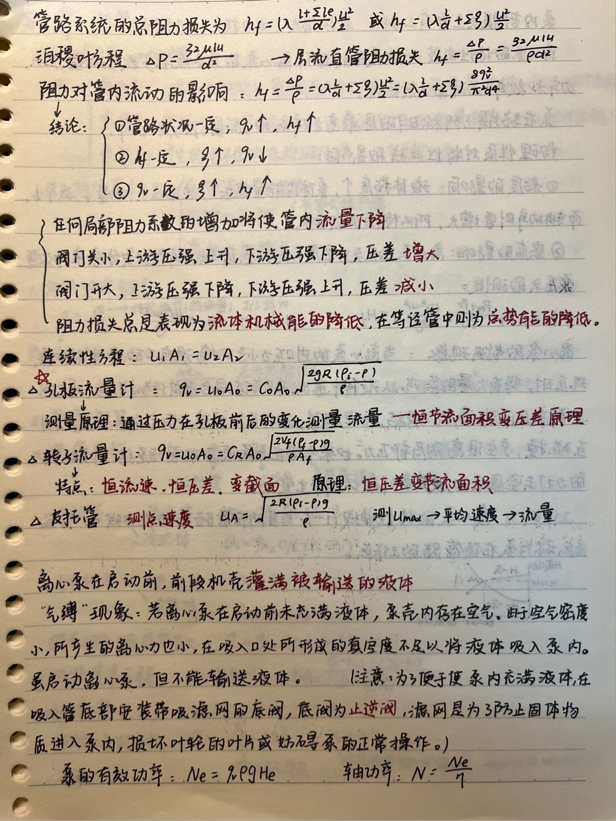 管路系统的总阻力损失为 hf=(λ (l+Σle)/d) u²/2 或 hf=(λ l/d+Σξ) u²/2
泊稷叶方程 ΔP=32μlu/d² →层流直管阻力损失 hf=ΔP/ρ=32μlu/ρd²
阻力对管内流动的影响: hf=ΔP/ρ=(λ l/d+Σξ) u²/2=(λ l/d+Σξ) 8qv²/π²d⁴
结论: ①管路状况一定, qv↑, hf↑
② hf一定, ξ↑, qv↓
③ qv一定, ξ↑, hf↑
任何局部阻力系数的增加将使管内流量下降
阀门关小,上游压强上升,下游压强下降,压差增大
阀门开大,上游压强下降,下游压强上升,压差减小
阻力损失总是表现为流体机械能的降低,在等径管中则为总势能的降低。
连续性方程: u₁A₁=u₂A₂
☆
△孔板流量计: qv=u₀A₀=C₀A₀√(2gR(ρi-ρ)/ρ)
测量原理:通过压力在孔板前后的变化测量流量 —恒节流面积变压差原理
△转子流量计: qv=u₀A₀=CRA₀√(2Vf(ρf-ρ)g/ρAf)
特点: 恒流速.恒压差.变截面 原理:恒压差变节流面积
△皮托管 测点速度 uA=√(2R(ρi-ρ)g/ρ) 测umax→平均速度→流量
离心泵在启动前,前段机壳灌满被输送的液体
"气缚"现象:若离心泵在启动前未充满液体,泵壳内存在空气。由于空气密度
小,所产生的离心力也小,在吸入口处所形成的真空度不足以将液体吸入泵内。
虽启动离心泵,但不能输送液体。 (注意:为了便于使泵内充满液体,在
吸入管底部安装带吸滤网的底阀,底阀为止逆阀,滤网是为了防止固体物
质进入泵内,损坏叶轮的叶片或妨碍泵的正常操作。)
泵的有效功率: Ne=qvρgHe 轴功率: N=Ne/η